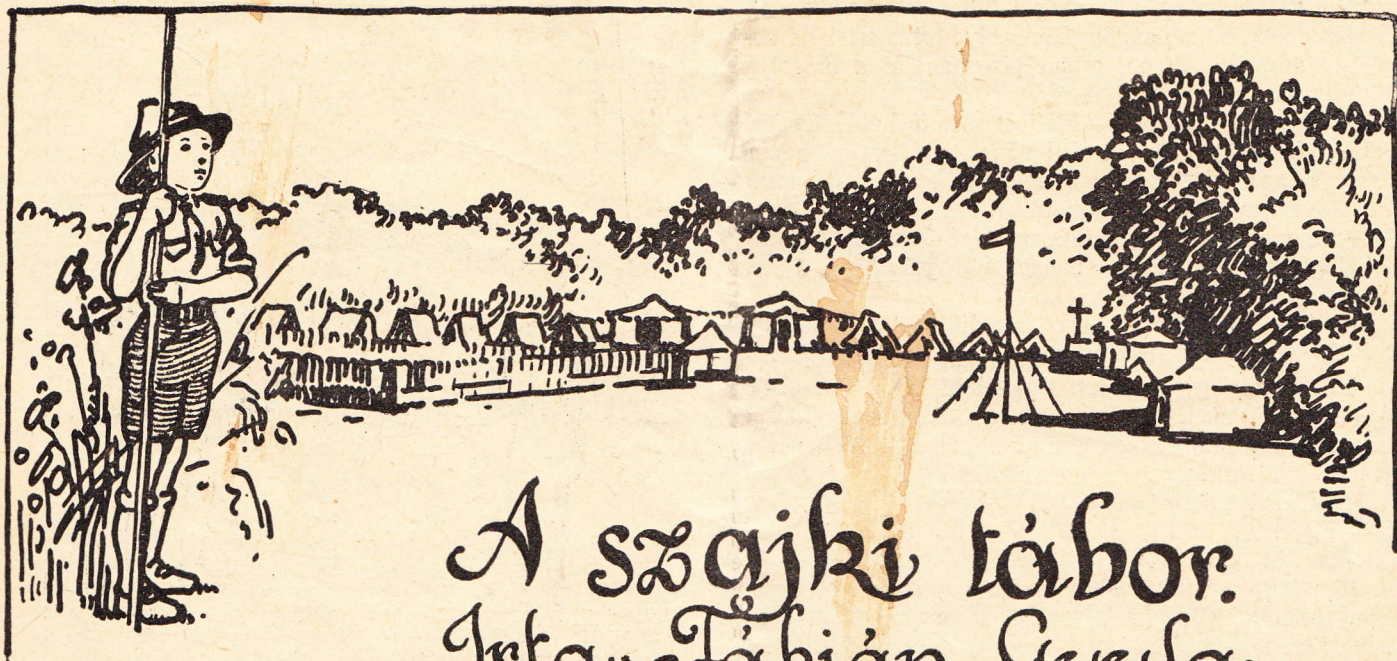 A szajki tábor.
Irta: Fábián Gyula.